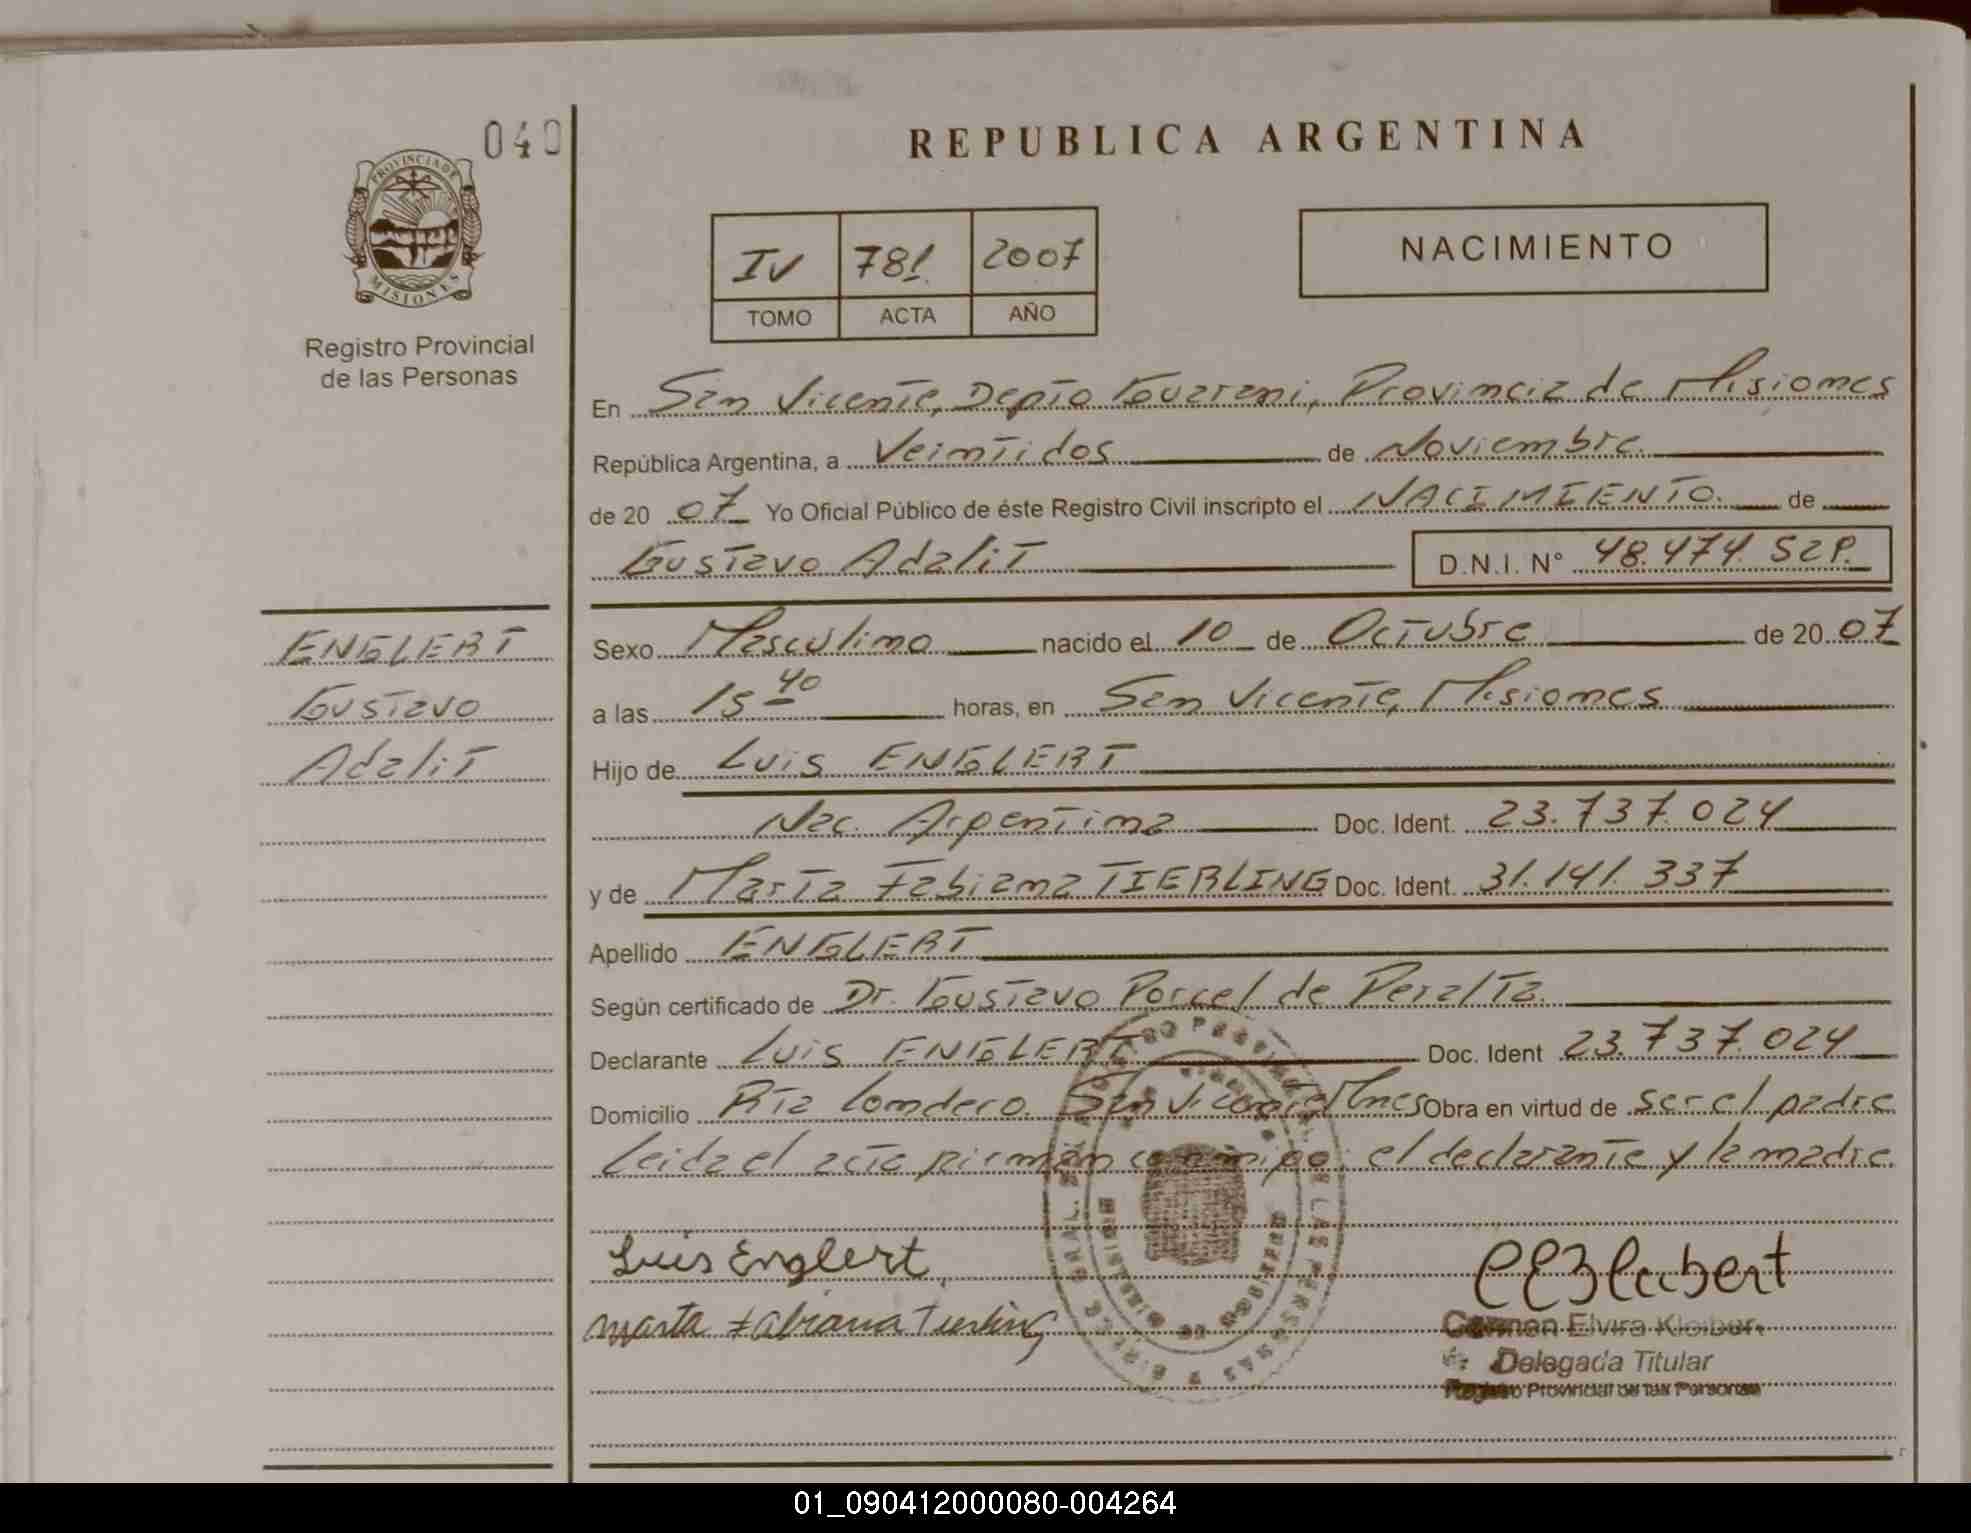 040
PROVINCIA DE
MISIONES
Registro Provincial
de las Personas
REPUBLICA ARGENTINA
IV 781 2007
TOMO ACTA AÑO
NACIMIENTO
En San Vicente, Depto Guarani, Provincia de Misiones
República Argentina, a Veintidos de Noviembre.
de 20 07 Yo Oficial Público de éste Registro Civil inscripto el NACIMIENTO. de
Gustavo Adalit D.N.I. N° 48.474.529.
ENGLERT
Gustavo
Adalit
Sexo Masculino nacido el 10 de Octubre de 20 07
a las 15 40 horas, en San Vicente, Misiones
Hijo de Luis ENGLERT
Nac. Argentina Doc. Ident. 23.737.024
y de Marta Fabiana TIERLING Doc. Ident. 31.141.337
Apellido ENGLERT
Según certificado de Dr. Gustavo Porcel de Peralta.
Declarante Luis ENGLERT Doc. Ident 23.737.024
Domicilio Rta Londero. San Vicente Mnes Obra en virtud de ser el padre
Leida el acta firman conmigo: el declarante y la madre.
Luis Englert
Marta Fabiana Tierling
Carmen Elvira Kleiber
Delegada Titular
Registro Provincial de las Personas
01_090412000080-004264